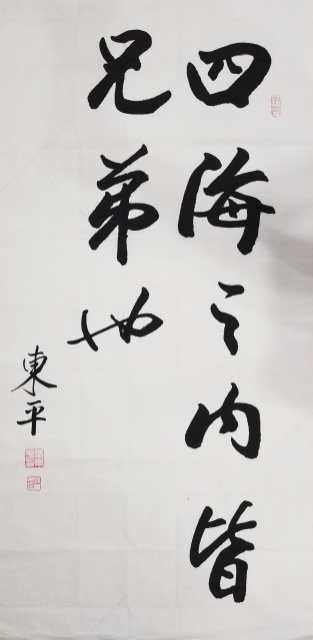 四海之内皆
兄弟也
東平